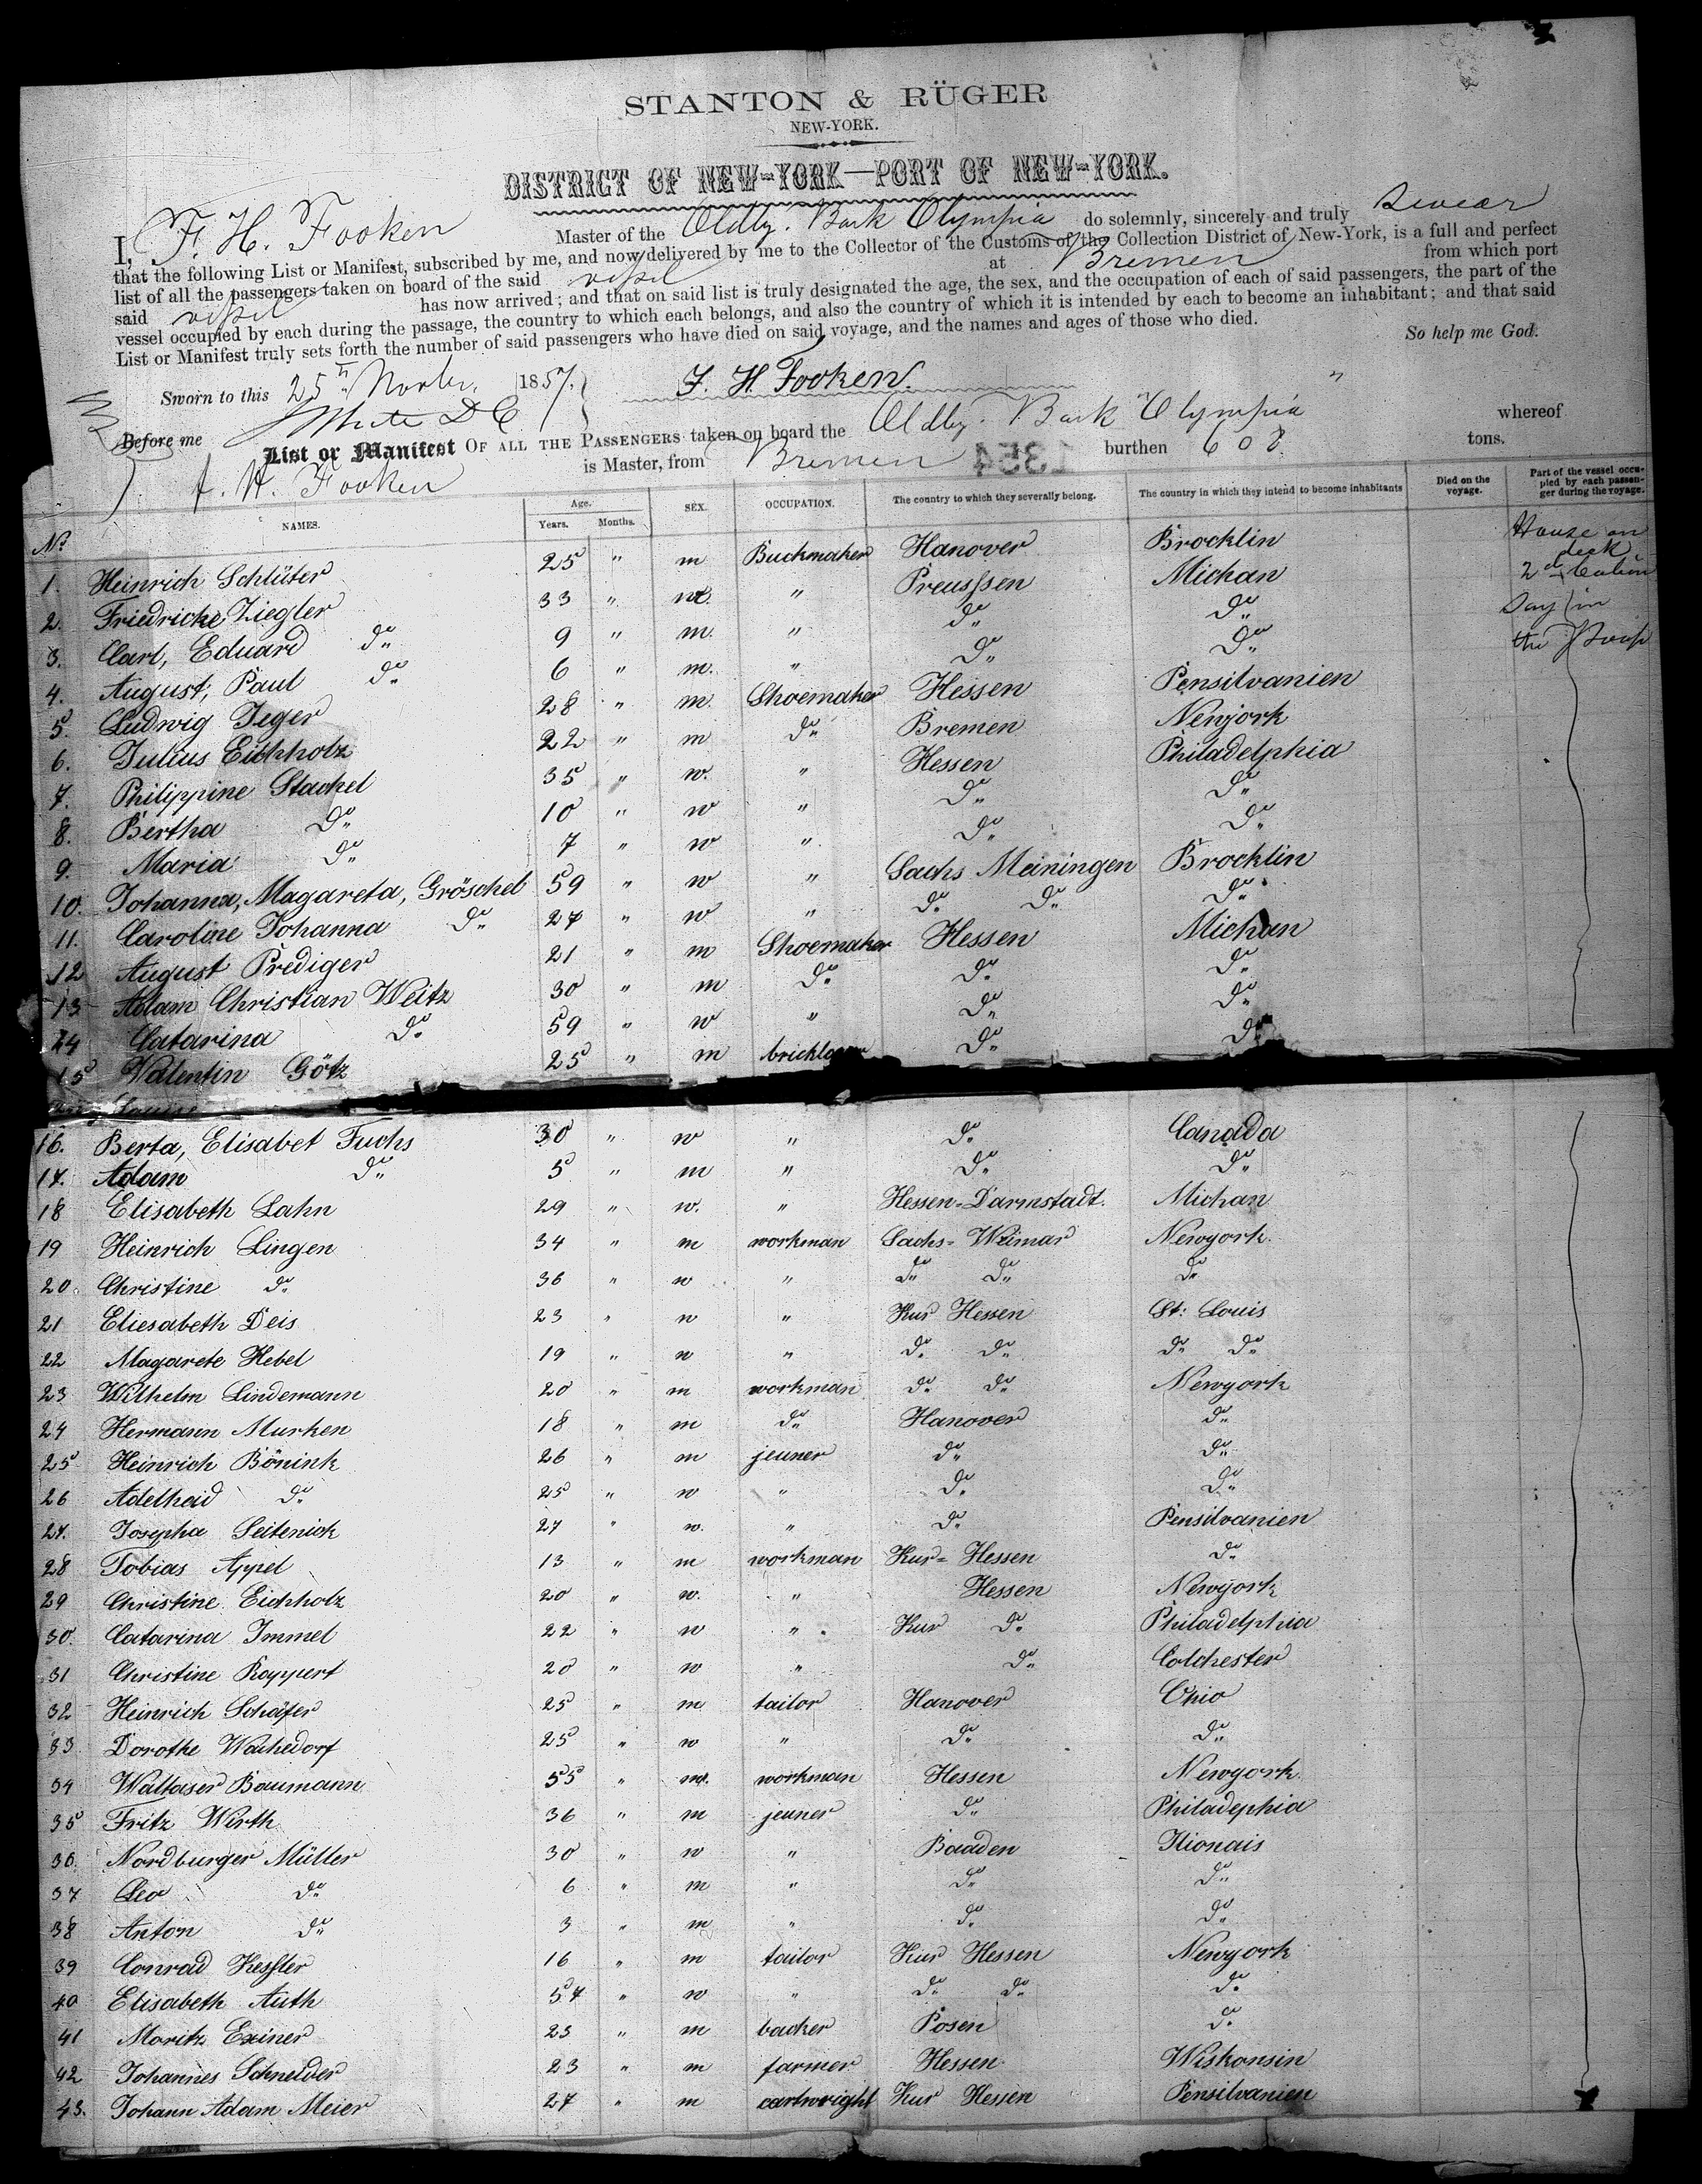 STANTON & RÜGER
NEW-YORK.
DISTRICT OF NEW-YORK—PORT OF NEW-YORK.
I, F. H. Fooken Master of the Oldbg. Bark Olympia do solemnly, sincerely and truly Swear
that the following List or Manifest, subscribed by me, and now delivered by me to the Collector of the Customs of the Collection District of New-York, is a full and perfect
list of all the passengers taken on board of the said vessel at Bremen from which port
said vessel has now arrived; and that on said list is truly designated the age, the sex, and the occupation of each of said passengers, the part of the
vessel occupied by each during the passage, the country to which each belongs, and also the country of which it is intended by each to become an inhabitant; and that said
List or Manifest truly sets forth the number of said passengers who have died on said voyage, and the names and ages of those who died.
So help me God.
Sworn to this 25th Novbr. 1857. F. H. Fooken.
Before me White D C
List or Manifest OF ALL THE PASSENGERS taken on board the Oldbg. Bark "Olympia" whereof
F. H. Fooken is Master, from Bremen 1354 burthen 608 tons.
No NAMES. Age. Years. Months. SEX. OCCUPATION. The country to which they severally belong. The country in which they intend to become inhabitants Died on the voyage. Part of the vessel occupied by each passenger during the voyage.
1. Heinrich Schlüter 25 " m Buckmaker Hanover Brocklin House on deck
2. Friedricke Ziegler 33 " w. " Preussen Michan 2d Cabin
3. Carl, Eduard do 9 " m. " do do
4. August, Paul do 6 " m. " do do the
5 Ludwig Jeger 28 " m. Shoemaker Hessen Pensilvanien
6. Julius Eichholz 22 " m do Bremen Newjork
7. Philippine Stachel 35 " w. " Hessen Philadelphia
8. Bertha do 10 " w " do do
9. Maria do 7 " w " do do
10. Johanna, Magareta, Gröschel 59 " w " Sachs Meiningen Brocklin
11. Caroline Johanna do 27 " w " do do do
12 August Prediger 21 " m Shoemaker Hessen Michan
13 Adam Christian Weitz 30 " m do do do
14 Catarina do 59 " w " do do
15 Valentin Götz 25 " m do do
16. Berta, Elisabet Fuchs 30 " w " do Canada
17. Adam do 5 " m " do do
18 Elisabeth Lahn 29 " w. " Hessen-Darmstadt. Michan
19 Heinrich Lingen 34 " m workman Sachs-Weimar Newyork
20. Christine do 36 " w " do do do
21 Eliesabeth Deis 23 " w " Kur Hessen St: Louis
22 Magarete Hebel 19 " w " do do do do
23 Wilhelm Lindemann 20 " m workman do do Newyork
24 Hermann Murken 18 " m do Hanover do
25 Heinrich Bönink 26 " m jeuner do do
26 Adelheid do 25 " w " do do
27. Josepha Seitenick 27 " w. " do Pensilvanien
28 Tobias Appel 13 " m workman Kur-Hessen do
29 Christine Eichholz 20 " w. " Hessen Newyork
30. Catarina Immel 22 " w " Kur do Philadelphia
31 Christine Roppert 20 " w " do Colchester
32 Heinrich Schäfer 25 " m tailor Hanover Ohio
33 Dorothe Wachedorf 25 " w " do do
34 Waltaser Baumann 55 " m. workman Hessen Newyork
35 Fritz Wirth 36 " m jeuner do Philadephia
36. Nordburger Müller 30 " w " Baaden Ilionais
37 Leo do 6 " m " do do
38 Anton do 3 " m " do do
39 Conrad Kessler 16 " m tailor Kur Hessen Newyork
40 Elisabeth Auth 57 " w " do do do
41 Moritz Exiner 23 " m backer Posen do
42 Johannes Schneider 23 " m farmer Hessen Wiskonsin
43. Johann Adam Meier 27 " m cartwright Kur Hessen Pensilvanien